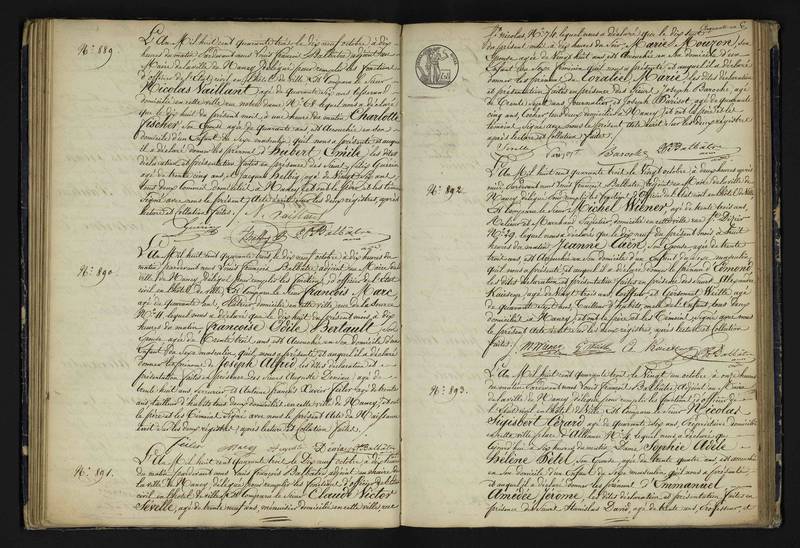 N.° 889.
L'An Mil huit cent quarante trois le dix neuf octobre à dix
heures du matin pardevant nous Louis François Balbâtre adjoint au
Maire de la ville de Nancy délégué pour remplir les fonctions
d'officier de l'état civil en l'hôtel de ville est comparu le Sieur
Nicolas Vaillant, âgé de quarante
domicilié en cette ville N.° 68 lequel nous a déclaré
que le dix huit du présent mois, à une heure du matin Charlotte
Fischer, son Épouse âgée de quarante ans, est accouchée en son
domicile d'un Enfant du sexe masculin, qu'il nous a présenté et auquel
il a déclaré donner les prénoms d'Hubert Emile, les dites
déclaration et présentation faites en présence des Sieurs
âgé de trente cinq ans,
tous deux domiciliés à Nancy et ont le père et les témoins
signé avec nous le présent Acte écrit sur les deux registres, après
lecture et collation faites.
N. Vaillant
Balbâtre
N.° 890.
L'An Mil huit cent quarante trois le dix neuf octobre, à dix heures du
matin pardevant nous Louis François Balbâtre adjoint au Maire de la
ville de Nancy, délégué pour remplir les fonctions d'officier de l'État
civil en l'hôtel de ville, Est comparu le Sieur François Marc,
âgé de quarante ans, domicilié en cette ville, rue
N.° 11. lequel nous a déclaré que le dix huit du présent mois à dix
heures du matin, Françoise Odile Bertault, son
Épouse âgée de trente trois ans est accouchée en son domicile d'un
Enfant du sexe masculin, qu'il nous a présenté et auquel il a déclaré
donner les prénoms de Joseph Alfred, les dites déclaration et
présentation faites en présence des Sieurs Auguste Deniau, âgé de
trente huit ans, serrurier et Antoine François Xavier Failer, âgé de trente
ans, tailleur d'habits tous deux domiciliés en cette ville de Nancy, et ont
le père et les témoins signé avec nous le présent Acte de Naissance
écrit sur les deux registres, après lecture et collation faites.
Failer Marc Deniau Balbâtre
N.° 891.
L'An Mil huit cent quarante trois, le dix neuf octobre, à
du matin pardevant nous Louis François Balbâtre adjoint au Maire de
la ville de Nancy délégué pour remplir les fonctions d'officier de l'état
civil en l'hôtel de ville, est comparu le Sieur Claude Victor
Séville, âgé de trente neuf ans, menuisier domicilié en cette ville, rue
St. Nicolas, N.° 74, lequel nous a déclaré que le dix
du présent mois à dix heures du soir, Marie Mouzon, son
Épouse, âgée de vingt huit ans est accouchée en son domicile d'un
Enfant du sexe féminin, qu'il nous a présenté et auquel il a déclaré
donner les prénoms de Coralie Marie, les dites déclaration
et présentation faites en présence des Sieurs Joseph Baroche, âgé
de trente ans, Journalier et Joseph Parisot, âgé de quarante
cinq ans, Cocher, tous deux domiciliés à Nancy et ont le père et les
témoins signé avec nous le présent Acte écrit sur les deux registres
après lecture et collation faites.
Séville Parisot Baroche Balbâtre
N.° 892.
L'An mil huit cent quarante trois, le vingt octobre à deux heures après
midi, pardevant nous Louis François Balbâtre, adjoint au Maire de la ville
de Nancy, délégué pour remplir les fonctions d'officier de l'état civil en l'hôtel de ville
Est comparu le Sieur Michel Wiener, âgé de trente trois ans,
Relieur et Marchand Papetier, domicilié en cette ville rue St. Dizier
N.° 29, lequel nous a déclaré que le dix neuf du présent mois à huit
heures du matin, Jeanne Caën, son Épouse âgée de trente
trois ans, est accouchée en son domicile d'un Enfant du sexe masculin
qu'il nous a présenté et auquel il a déclaré donner le prénom d'Edmond
les dites déclaration et présentation faites en présence des Sieurs Alexandre
âgé de vingt trois ans,
âgé de quarante tous deux
domiciliés à Nancy, et ont le père et les témoins signé avec nous
le présent Acte écrit sur les deux registres, après lecture et collation
faites.
M Wiener Balbâtre
N.° 893.
L'An Mil huit cent quarante trois, le vingt un octobre à onze heures
du matin, pardevant nous Louis François Balbâtre, adjoint au Maire
de la ville de Nancy, délégué pour remplir les fonctions d'officier de
l'État civil en l'hôtel de ville, Est comparu le Sieur Nicolas
Sigisbert Gérard, âgé de quarante ans, Propriétaire domicilié
en cette ville, place d'Alliance N.° 4, lequel nous a déclaré que
heures du matin, Dame Sophie Adèle
Hélène son Épouse âgée de trente quatre ans est accouchée
en son domicile d'un Enfant du sexe masculin, qu'il nous a présenté
et auquel il a déclaré donner les prénoms d'Emmanuel
Amédée Jérôme, les dites déclaration et présentation faites en
présence des Sieurs Stanislas David, âgé de trente ans, Professeur, et